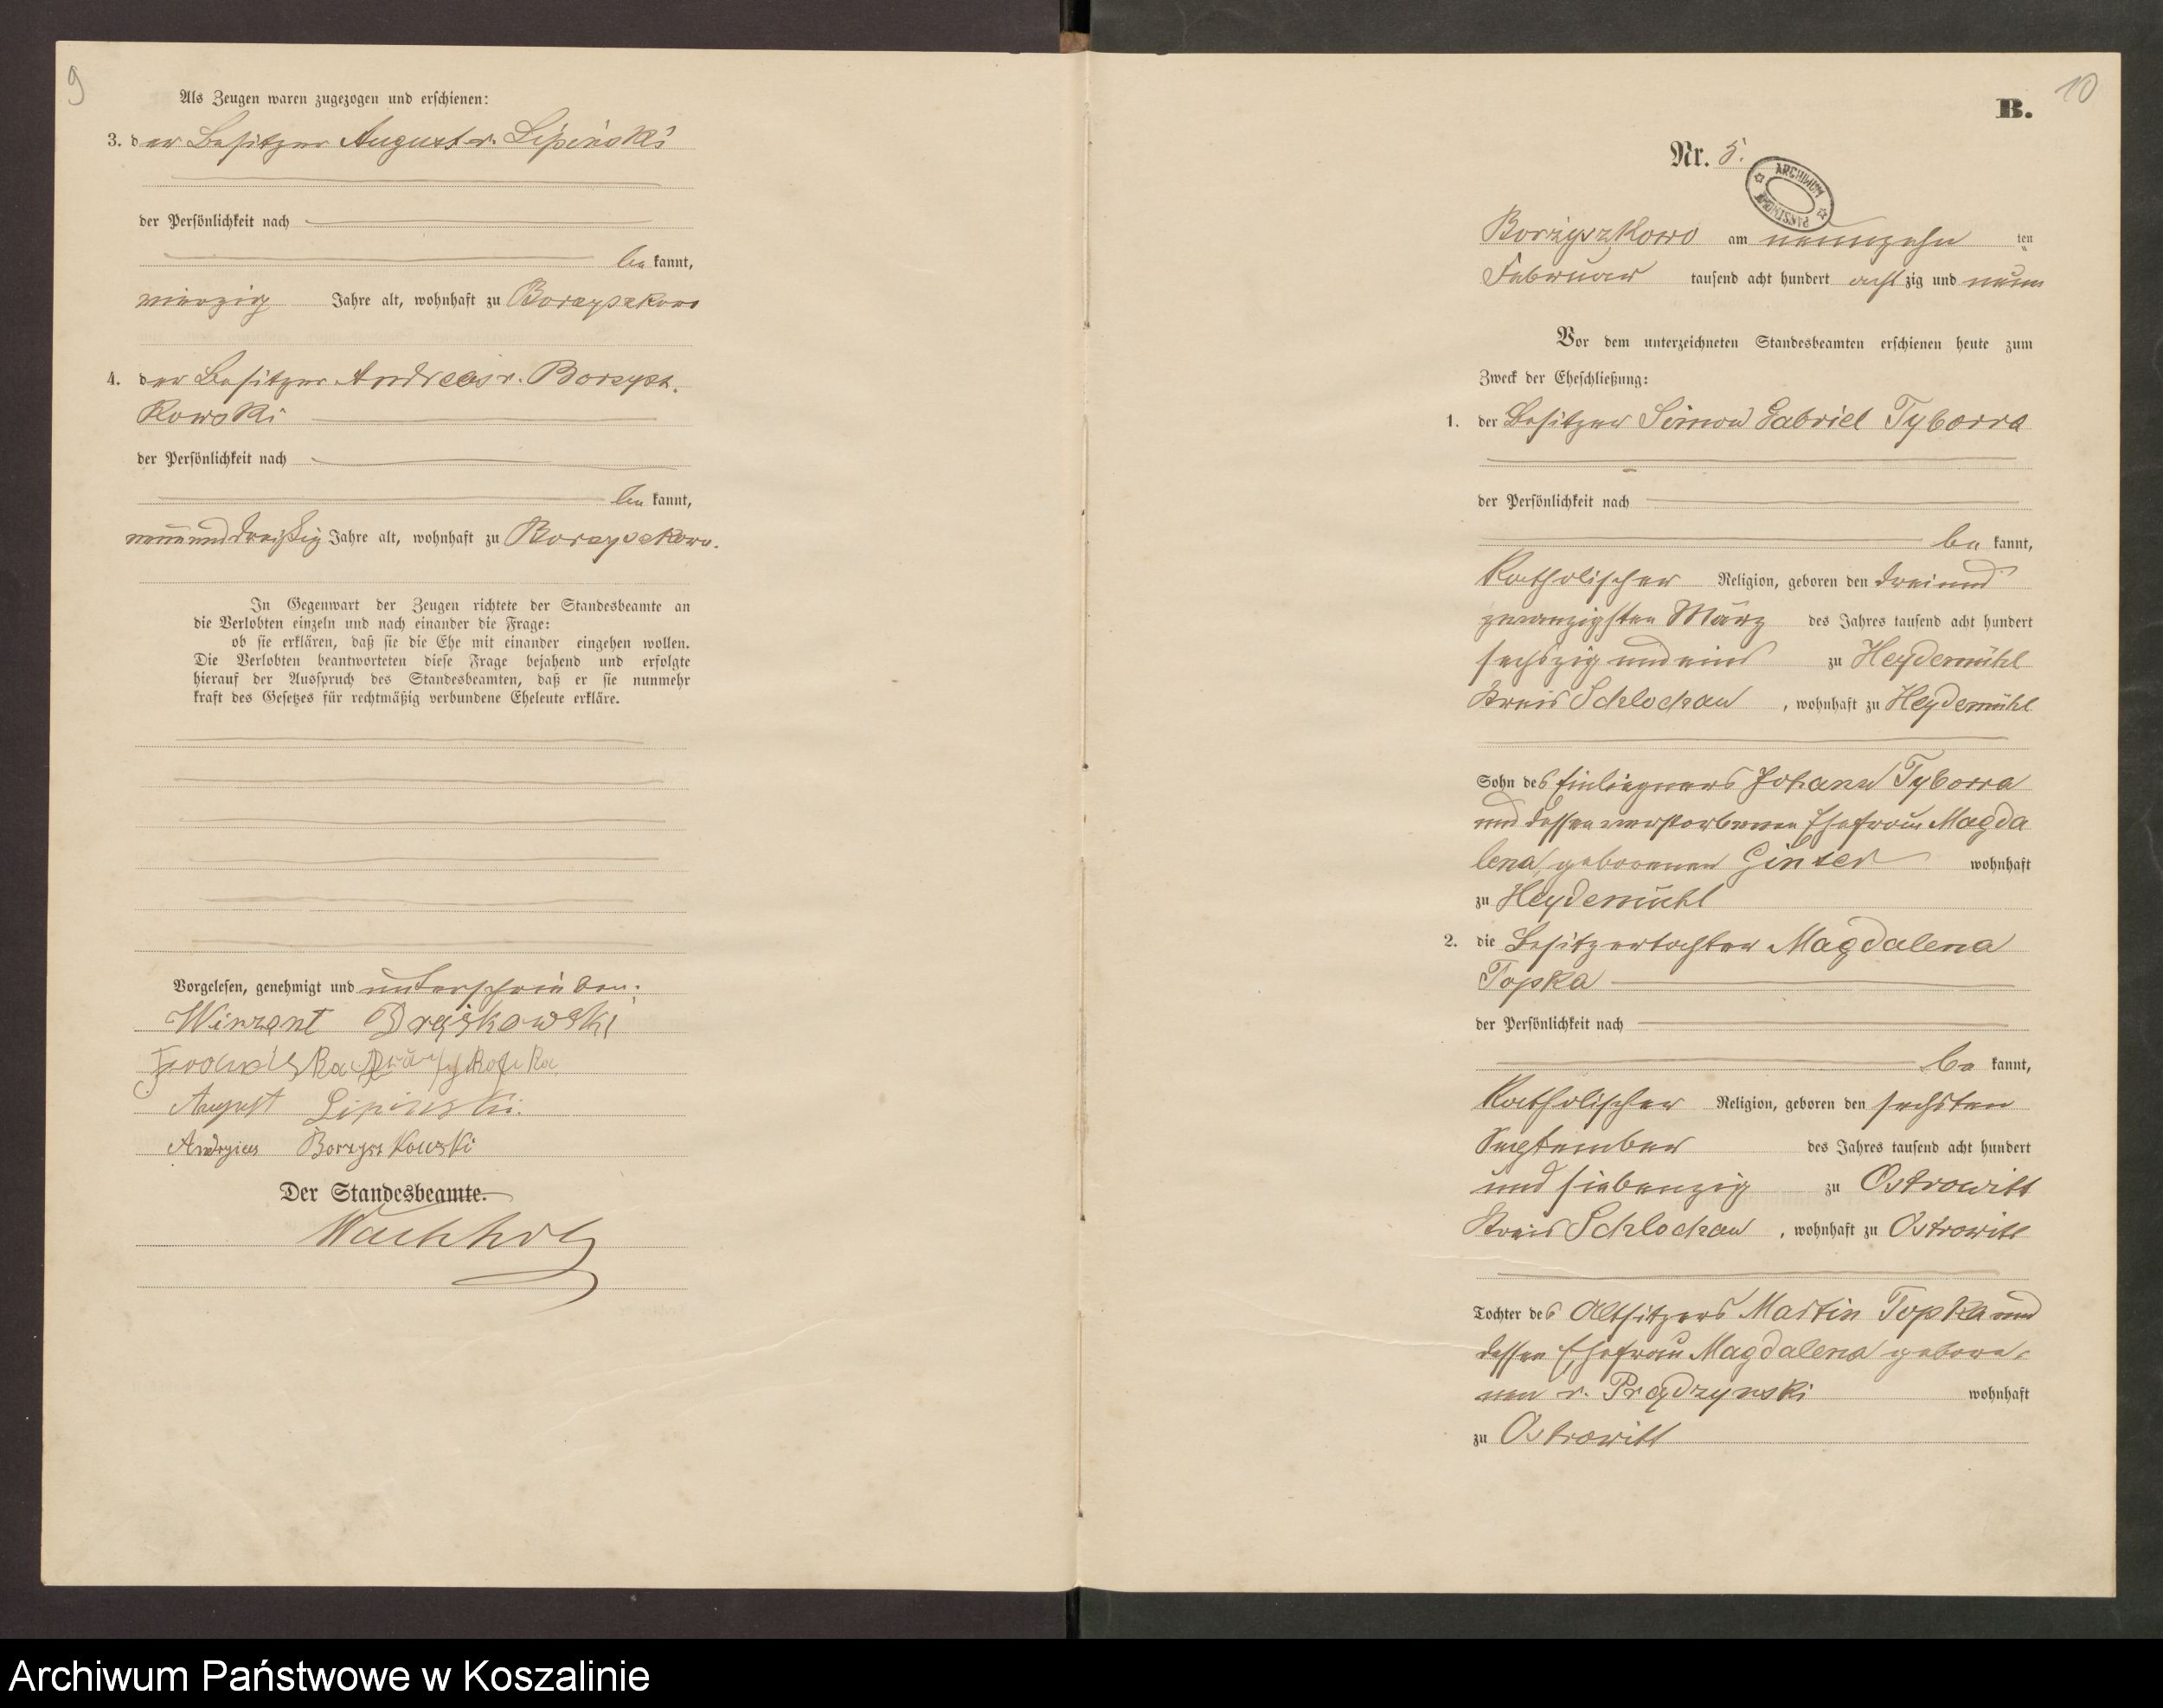 9
Als Zeugen waren zugezogen und erschienen:
3. der Besitzer August v. Lipinski
der Persönlichkeit nach
bekannt,
vierzig Jahre alt, wohnhaft zu Borzyszkowo
4. der Besitzer Andreas v. Borzysz-
kowski
der Persönlichkeit nach
bekannt,
neununddreißig Jahre alt, wohnhaft zu Borzyszkowo.
In Gegenwart der Zeugen richtete der Standesbeamte an
die Verlobten einzeln und nach einander die Frage:
ob sie erklären, daß sie die Ehe mit einander eingehen wollen.
Die Verlobten beantworteten diese Frage bejahend und erfolgte
hierauf der Ausspruch des Standesbeamten, daß er sie nunmehr
kraft des Gesetzes für rechtmäßig verbundene Eheleute erkläre.
Vorgelesen, genehmigt und unterschrieben:
Winzent
August Lipinski.
Borzyszkowski
Der Standesbeamte.
Wachholz
10
B.
Nr. 5.
ARCHIWUM PAŃSTWOWE
Borzyszkowo am neunzehnten
Februar tausend acht hundert achtzig und neun
Vor dem unterzeichneten Standesbeamten erschienen heute zum
Zweck der Eheschließung:
1. der Besitzer Simon Gabriel Tyborra
der Persönlichkeit nach
bekannt,
Katholischer Religion, geboren den dreiund
zwanzigsten März des Jahres tausend acht hundert
sechszig und eins zu Heydemühl
Kreis Schlochau, wohnhaft zu Heydemühl
Sohn des Einliegers Johann Tyborra
und dessen verstorbenen Ehefrau Magda
lena, geborenen Ginter wohnhaft
zu Heydemühl
2. die Besitzertochter Magdalena
Topka
der Persönlichkeit nach
bekannt,
Katholischer Religion, geboren den sechsten
September des Jahres tausend acht hundert
und siebenzig zu Ostrowitt
Kreis Schlochau, wohnhaft zu Ostrowitt
Tochter des Altsitzers Martin Topka und
dessen Ehefrau Magdalena gebore-
nen v. Prądzynski wohnhaft
zu Ostrowitt
Archiwum Państwowe w Koszalinie